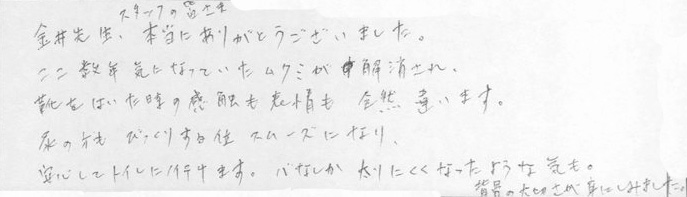 スタッフの皆さま
金井先生、本当にありがとうございました。
ここ数年気になっていたムクミが解消され、
靴をはいた時の感触も表情も全然違います。
尿の方もびっくりする位スムーズになり、
安心してトイレに行けます。心なしか太りにくくなったような気も。
背骨の大切さが身にしみました。